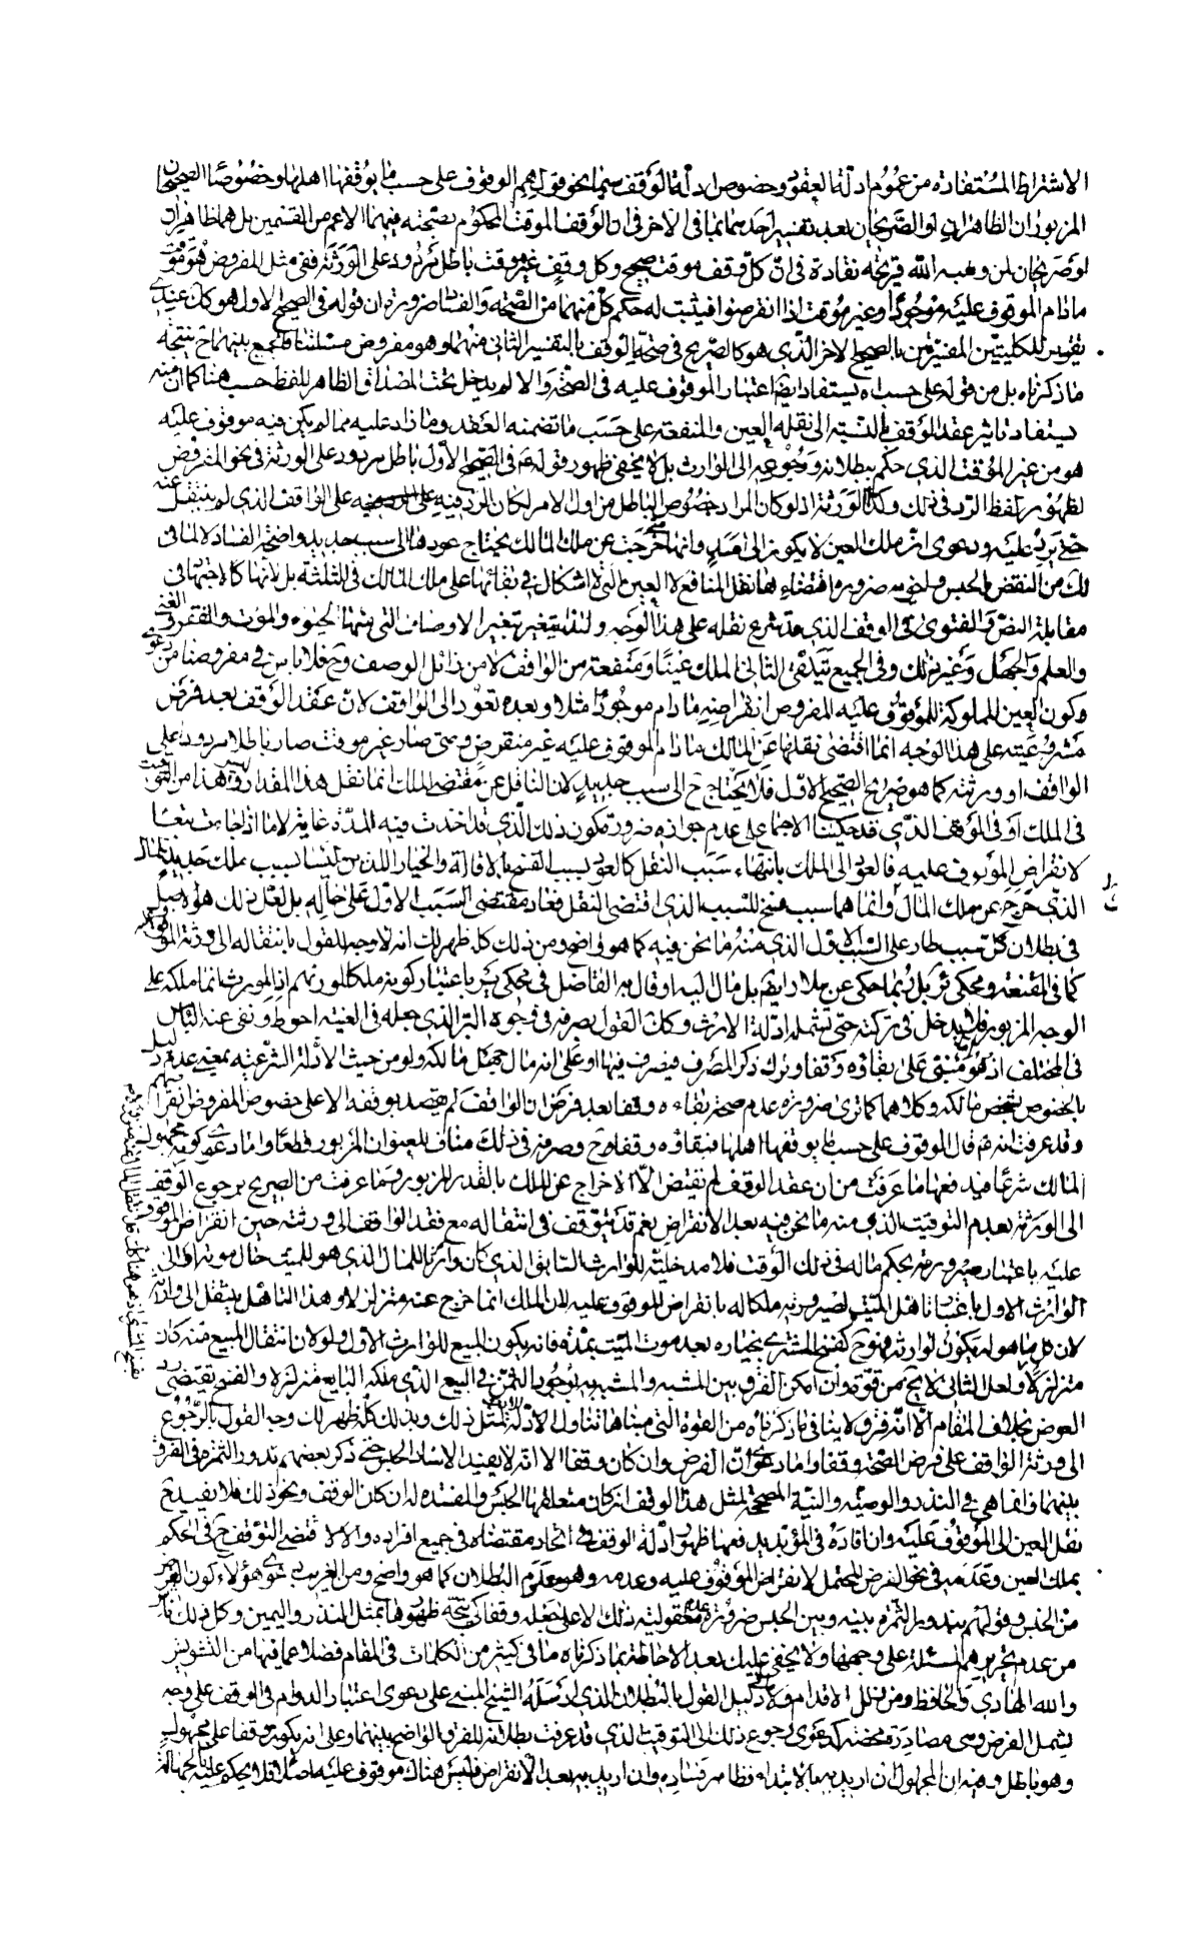 الاشتراط المستفادة من عموم ادلة العقود وخصوص ادلة الوقف سيما نحو قولهم الوقوف على حسب ما يوقفها اهلها وخصوصا الصحيحان
المزبوران الظاهران او الصريحان بعد تفسير احدهما بما في الاخر في ان الوقف الموقت المحكوم بصحته فيهما الاعم من القسمين بل هما ظاهران
او صريحان لمن وهبه الله قريحة نقادة في ان كل وقف موقت صحيح وكل وقف غير موقت باطل مردود على الورثة ففي مثل المفروض هو موقت
مادام الموقوف عليه موجودا وغير موقت اذا انقرضوا فيثبت له حكم كل منهما من الصحة والفساد ضرورة ان قوله في الصحيح الاول هو كذا عندي
تقرير للكليتين المفسرتين بالصحيح الاخر الذي هو كالصريح في صحة الوقف بالتفسير الثاني منهما وهو مفروض مسئلتنا فالجمع بينهما ح نتيجة
ما ذكرناه بل من قوله على حسب اه يستفاد ايضا اعتبار الموقوف عليه في الصحة والا لم يدخل تحت المضاف الظاهر للفظ حسب هنا كما ان منه
يستفاد تاثير عقد الوقف بالنسبة الى نقله العين والمنفعة على حسب ما تضمنه العقد وما زاد عليه مما لم يكن فيه موقوف عليه
هو من غير الموقت الذي حكم ببطلانه ورجوعه الى الوارث بل لا يخفى ظهور قوله ع في الصحيح الاول باطل مردود على الورثة في نحو المفروض
لظهور لفظ الرد في ذلك وكذا الورثة اذ لو كان المراد خصوص الباطل من اول الامر لكان الرد فيه على الواقف الذي لم ينتقل عنه
حتى يرد عليه ودعوى ان ملك العين لا يكون الى امد وانها متى خرجت عن ملك المالك يحتاج عودها الى سبب جديد واضحة الفساد لا لما في
ذلك من النقض بالحبس ونحوه ضرورة اقتضاءها نقل المنافع لا العين التي لا اشكال في بقائها على ملك المالك في الثلثة بل لانها كالاجتهاد في
مقابلة النص والفتوى في الوقف الذي قد شرع نقله على هذا الوجه ولذا يتغير بتغير الاوصاف التي منها الحيوة والموت والفقر والغنى
والعلم والجهل وغير ذلك وفي الجميع يتلقى الثاني الملك عينا ومنفعة من الواقف لا من زائل الوصف وح فلا باس في مفروضنا من دعوى
كون العين المملوكة للموقوف عليه المفروض انقراضه مادام موجودا مثلا وبعده تعود الى الواقف لان عقد الوقف بعد فرض
مشروعيته على هذا الوجه انما اقتضى نقلها عن المالك مادام الموقوف عليه غير منقرض ومتى صار غير موقت صار باطلا مردودا على
الواقف او ورثته كما هو صريح الصحيح الاول فلا يحتاج ح الى سبب جديد لان الناقل عن مقتضى الملك انما نقل هذا المقدار وليس هذا من التوقيت
في الملك او في الوقف الذي قد حكينا الاجماع على عدم جوازه ضرورة كون ذلك الذي قد اخذت فيه المدة غاية لا ما اذا جاءت تبعا
لانقراض الموقوف عليه فالعود الى الملك بانتهاء سبب النقل كالعود بسبب الفسخ بالاقالة والخيار اللذين ليسا بسبب ملك جديد للمال
الذي خرج عن ملك المالك وانما هما سبب فسخ للسبب الذي اقتضى النقل فعاد مقتضى السبب الاول على حاله بل لعل ذلك هو الاصل
في بطلان كل سبب طار على السبب الاول الذي منه ما نحن فيه كما هو واضح ومن ذلك كله ظهر لك انه لا وجه للقول بانتقاله الى ورثة الموقوف عليه
كما في المقنعة ومحكي ئر بل ربما حكي عن جملة ايضا بل مال اليه او قال به الفاضل في محكي ير باعتبار كونه ملكا لمورثهم اذ المورث انما ملكه على
الوجه المزبور فلا يدخل في تركته حتى تشمله ادلة الارث وكذا القول بصرفه في وجوه البر الذي جعله في الغنية احوط ونفى عنه الباس
في المختلف اذ هو مبني على بقاؤه وقفا وترك ذكر المصرف فيصرف فيها او على انه مال جهل مالكه ولو من حيث الادلة الشرعية بمعنى عدم دليل
بالخصوص لشخص مالكه وكلاهما كما ترى ضرورة عدم صحة بقاءه وقفا بعد فرض ان الواقف لم يقصد بوقفه الا على خصوص المفروض انقراضهم
وقد عرفت انه ع قال الوقوف على حسب ما يوقفها اهلها فبقاؤه وقفا ح وصرفه في ذلك مناف للعنوان المزبور قطعا واما دعوى كونه مجهول
المالك شرعا فيدفعها ما عرفت من ان عقد الوقف لم يقتض الا الاخراج عن الملك بالقدر المزبور وما عرفت من الصريح برجوع الوقف
الى الورثة بعدم التوقيت الذي منه ما نحن فيه بعد الانقراض نعم قد يتوقف في انتقاله مع فقد الواقف الى ورثته حين انقراض الموقوف
عليه باعتبار صيرورته بحكم ماله في ذلك الوقت فلا مدخلية للوارث السابق الذي كان وارثا للمال الذي هو للميت حال موته او الى
الوارث الاول باعتبار تاهل الميت لصيرورته ملكا له بانقراض الموقوف عليه لان الملك انما خرج عنه متزلزلا وهذا التاهل ينتقل الى وارثه
لان كل ما هو له يكون لوارثه فهو ح كفسخ المشتري بخياره بعد موت الميت بمدة فانه يكون المبيع للوارث الاول ولو لان انتقال المبيع عنه كان
متزلزلا ولعل الثاني لا يخ من قوة وان امكن الفرق بين المشبه والمشبه به بوجود الثمن في البيع الذي ملكه البايع متزلزلا والفسخ يقتضي رد
العوض بخلاف المقام الا انه فرق لا ينافي ما ذكرناه من القوة التي مبناها تناول الادلة لمثل ذلك وبذلك كله ظهر لك وجه القول بالرجوع
الى ورثة الواقف على فرض الصحة وقفا واما دعوى ان الفرض وان كان وقفا الا انه لا يفيد الا فساد الحبس حتى ذكر بعضهم بدور الثمرة في الفرق
بينهما وانما هي في النذر والوصية والنية المصححة لمثل هذا الوقف ان كان متعلقها الحبس والمفسدة له ان كان الوقف ونحو ذلك فلا يفيد ح
نقل العين الى الموقوف عليه وان افاده في المؤبد يدفعها ظهور ادلة الوقف في اتحاد مقتضاه في جميع افراده والا لاقتضى التوقف ح في الحكم
بملك العين وعدمه في نحو الفرض المحتمل لانقراض الموقوف عليه وعدمه وهو معلوم البطلان كما هو واضح ومن الغريب دعوى هؤلاء كون الفرض
من الحبس وقولهم بدور الثمرة بينه وبين الحبس ضرورة عدم معقولية ذلك الا على جعله وقفا كي يتجه ظهورها بمثل النذر واليمين وكل ذلك ناش
من عدم تحريرهم المسئلة على وجهها ولا يخفى عليك بعد الاحاطة بما ذكرناه ما في كثير من الكلمات في المقام فضلا عما فيها من التشويش
والله الهادي والحافظ من زلل الاقدام واما دليل القول بالبطلان الذي ارسله الشيخ المبني على دعوى اعتبار الدوام في الوقف على وجه
يشمل الفرض وهي مصادرة محضة كدعوى رجوع ذلك الى التوقيت الذي قد عرفت بطلانه للفرق الواضح بينهما وعلى انه يكون وقفا على مجهول
وهو باطل وفيه ان المجهول ان اريد به الابتداء فظاهر فساده وان اريد به بعد الانقراض فليس هناك موقوف عليه اصلا فلا يحكم عليه بالجهالة